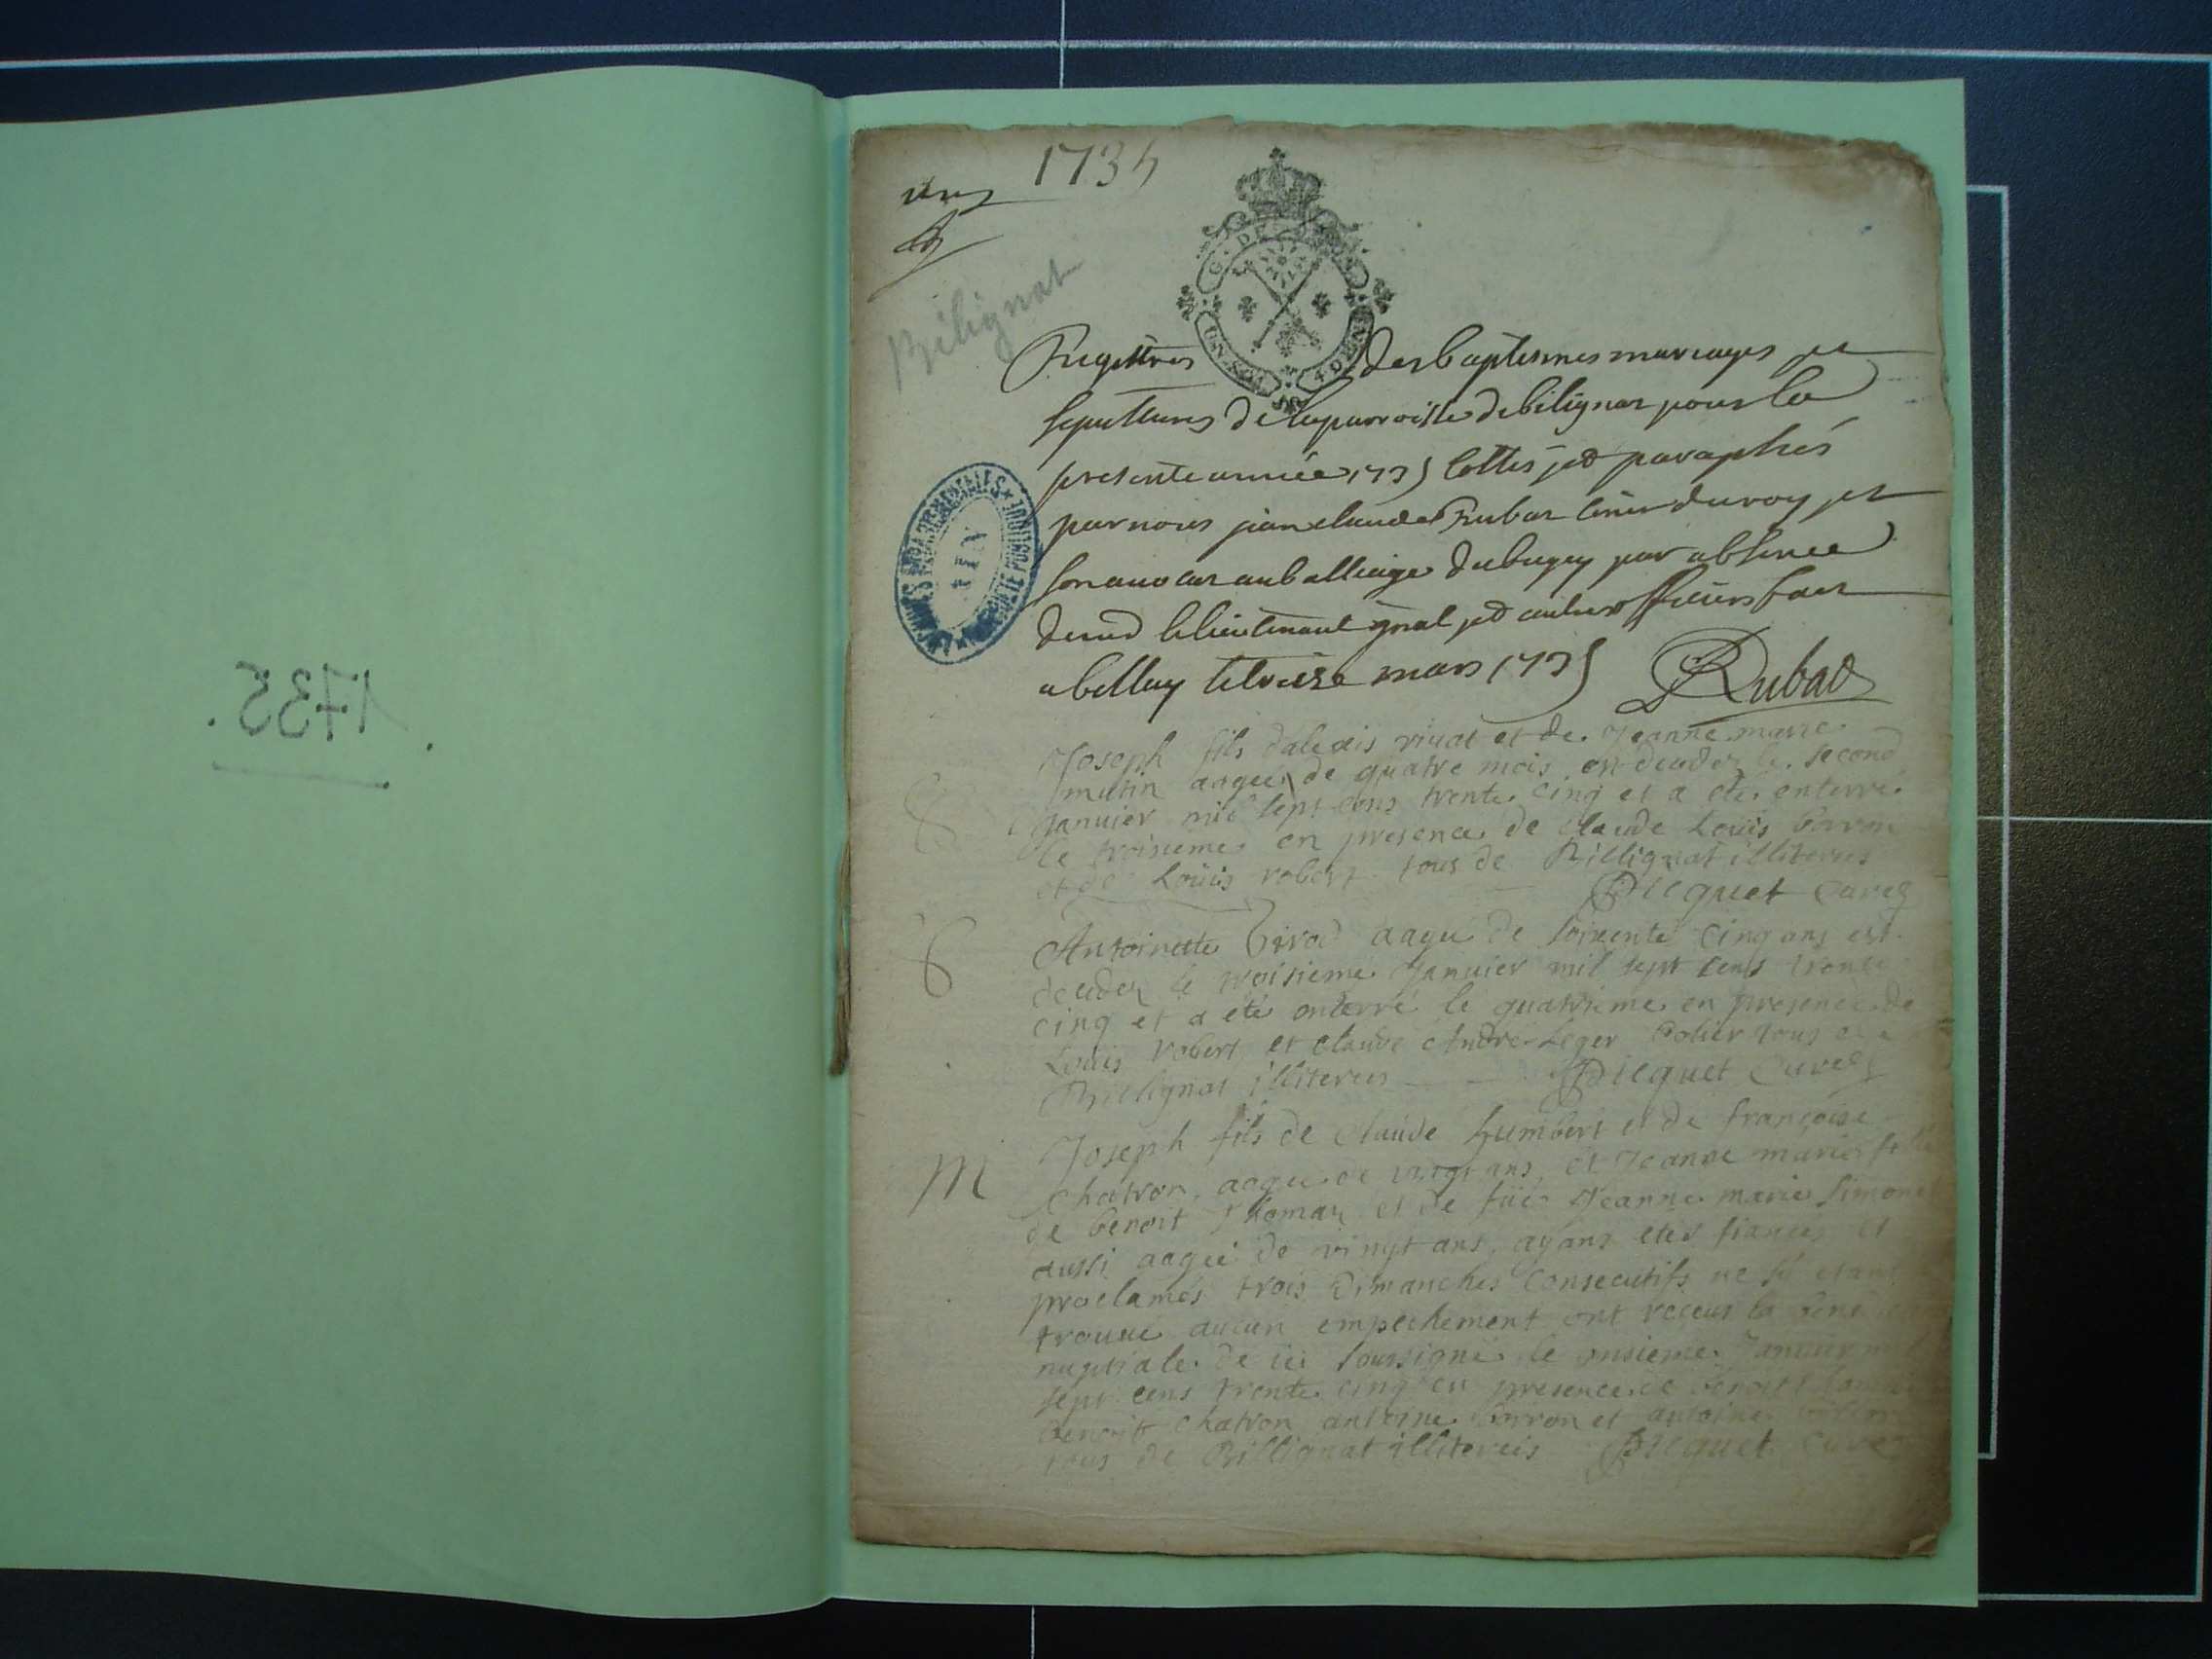 1735.
1735
Bilignat
G. DE
UN SOL 4 DEN
ARCHIVES DEPARTEMENTALES
AIN
Registres des baptesmes mariages et
sepultures de la parroisse de bilignat pour la
presente année 1735 cottés et paraphés
par nous jean claude Rubat coner du roy et
son avocat au balliage du bugey par absence
de mr le lieutenant gnal et autres officiers fait
a belley le treize mars 1735 Rubat
Joseph fils dalexis vivat et de Jeanne marie
mutin aagé de quatre mois est decedez le second
Janvier mil sept cens trente cinq et a eté enterré
le troisieme en presence de Claude Loüis borron
et de Loüis robert tous de Billignat illiterés
Picquet Curé
S
Antoinette Girod aagée de soixente cinq ans est
decedez le troisieme Janvier mil sept cens trente
cinq et a eté enterré le quatrieme en presence de
Louis robert et claude André Leger tous de
Billignat illiterés Picquet Curé
M
Joseph fils de Claude humbert et de françoise
Chatron, aagée de vingt ans et Jeanne marie fille
de benoit thomas et de füe Jeanne marie simonet
aussi aagée de vingt ans, ayans etés fiancés et
proclamés trois dimanches consecutifs ne s'y etant
trouvé aucun empechement ont receus la
nuptiale de ici soussigné le onsieme Janvier mil
sept cens trente cinq en presence de benoit
benoit chatron antoine borron et antoine
tous de Billignat illiterés Picquet Curé